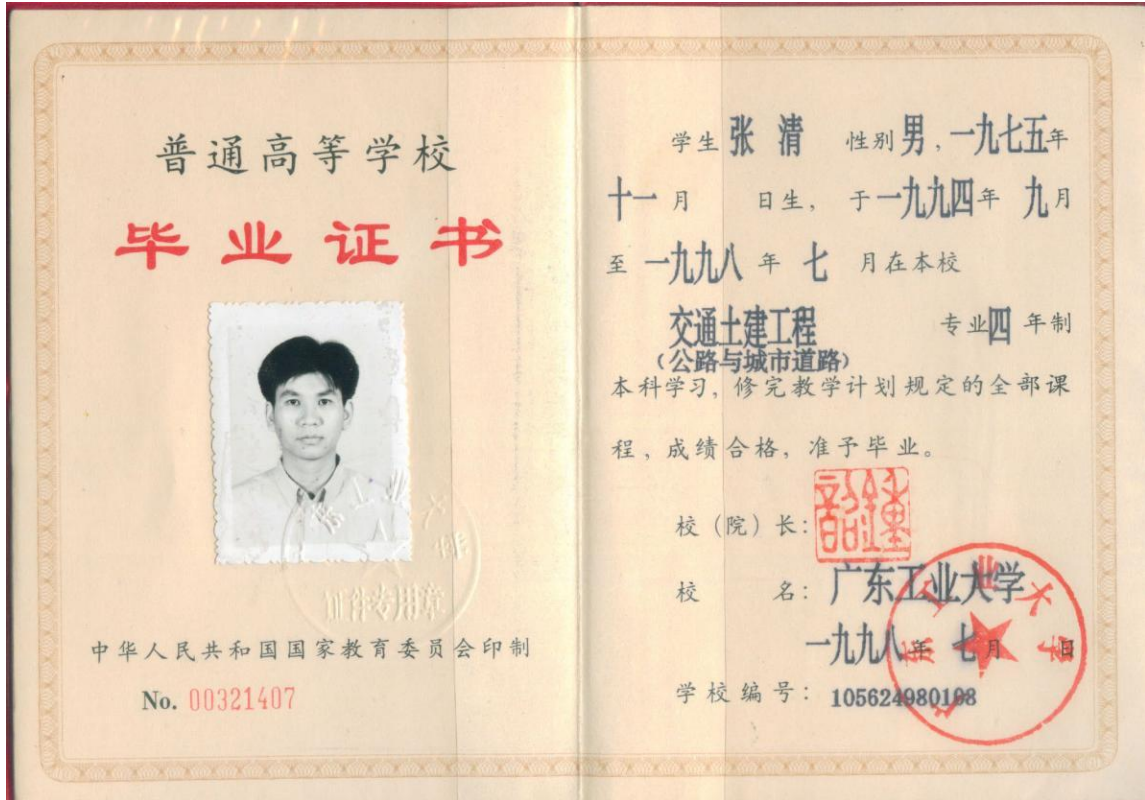 普通高等学校
毕业证书
证件专用章
中华人民共和国国家教育委员会印制
No. 00321407
学生 张 清 性别 男, 一九七五年
十一月 日生, 于一九九四年 九月
至 一九九八 年 七 月在本校
交通土建工程 专业四 年制
(公路与城市道路)
本科学习, 修完教学计划规定的全部课
程, 成绩合格, 准予毕业。
校 (院) 长:
校 名: 广东工业大学
一九九八年 七月 日
学校编号: 105624980108
广东工业大学